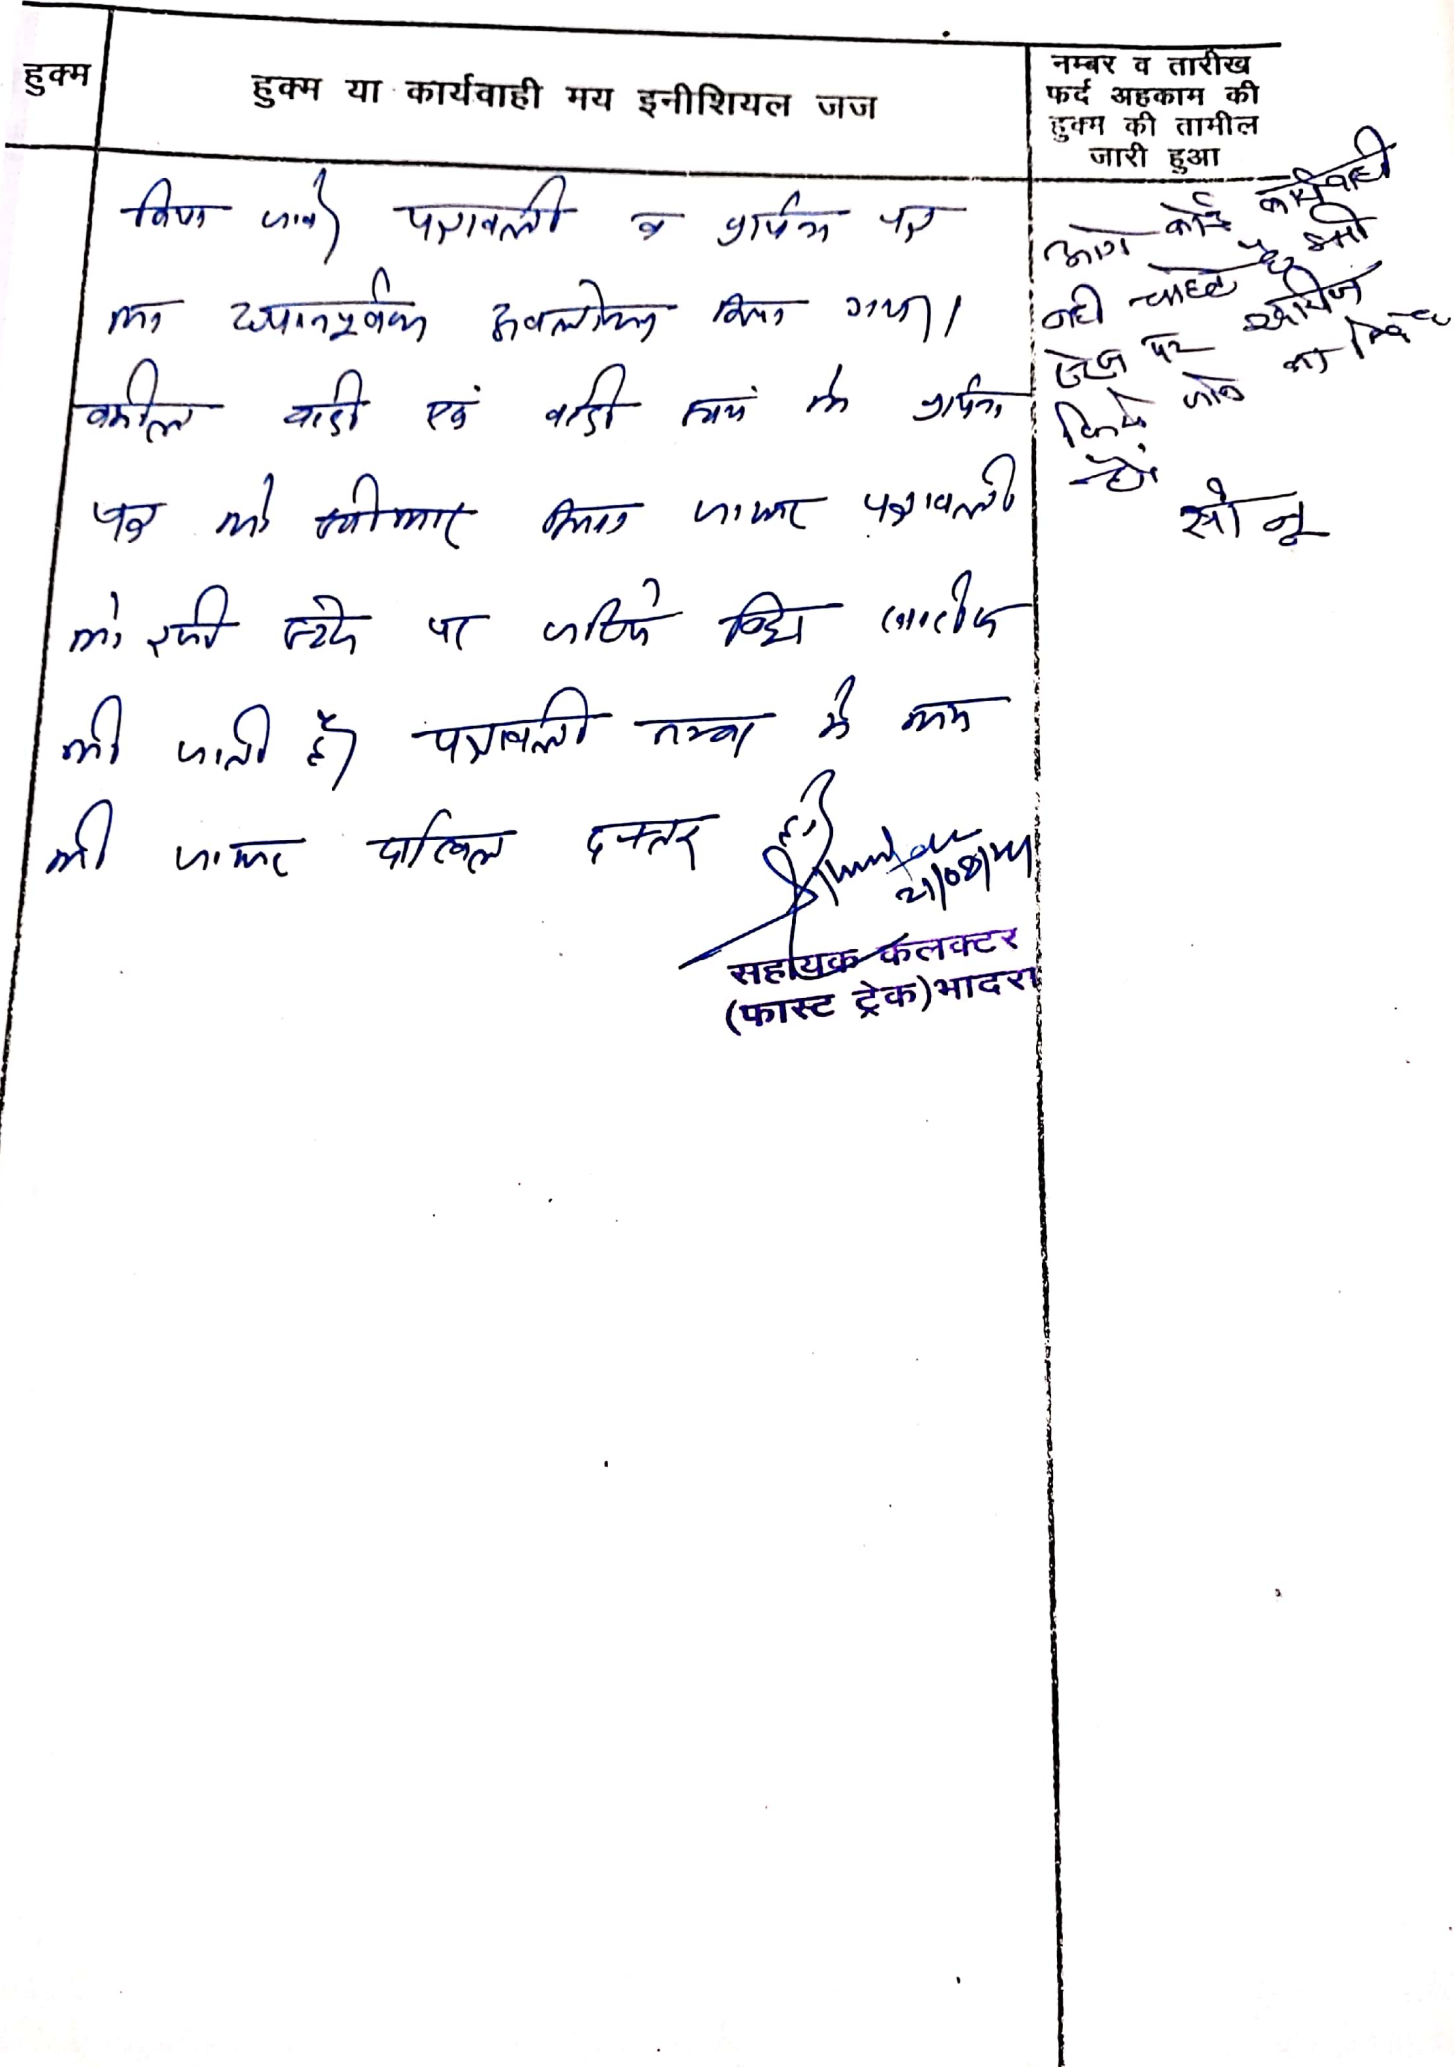 हुक्म
हुक्म या कार्यवाही मय इनीशियल जज
नम्बर व तारीख
फर्द अहकाम की
हुक्म की तामील
जारी हुआ
किया जावे। पत्रावली व प्रार्थना पत्र
का ध्यानपूर्वक अवलोकन किया गया।
वकील वादी एवं वादी स्वयं के प्रार्थना
पत्र को स्वीकार किया जाकर पत्रावली
को इसी स्टेज पर जरिये विड्रो खारीज
की जाती है। पत्रावली नम्बर से कम
की जाकर दाखिल दफ्तर हो।
सहायक कलक्टर
(फास्ट ट्रेक) भादरा
आगे कोई कार्यवाही
नही चाहते है इसी
स्टेज पर खारीज
किये जाने का
सोनू